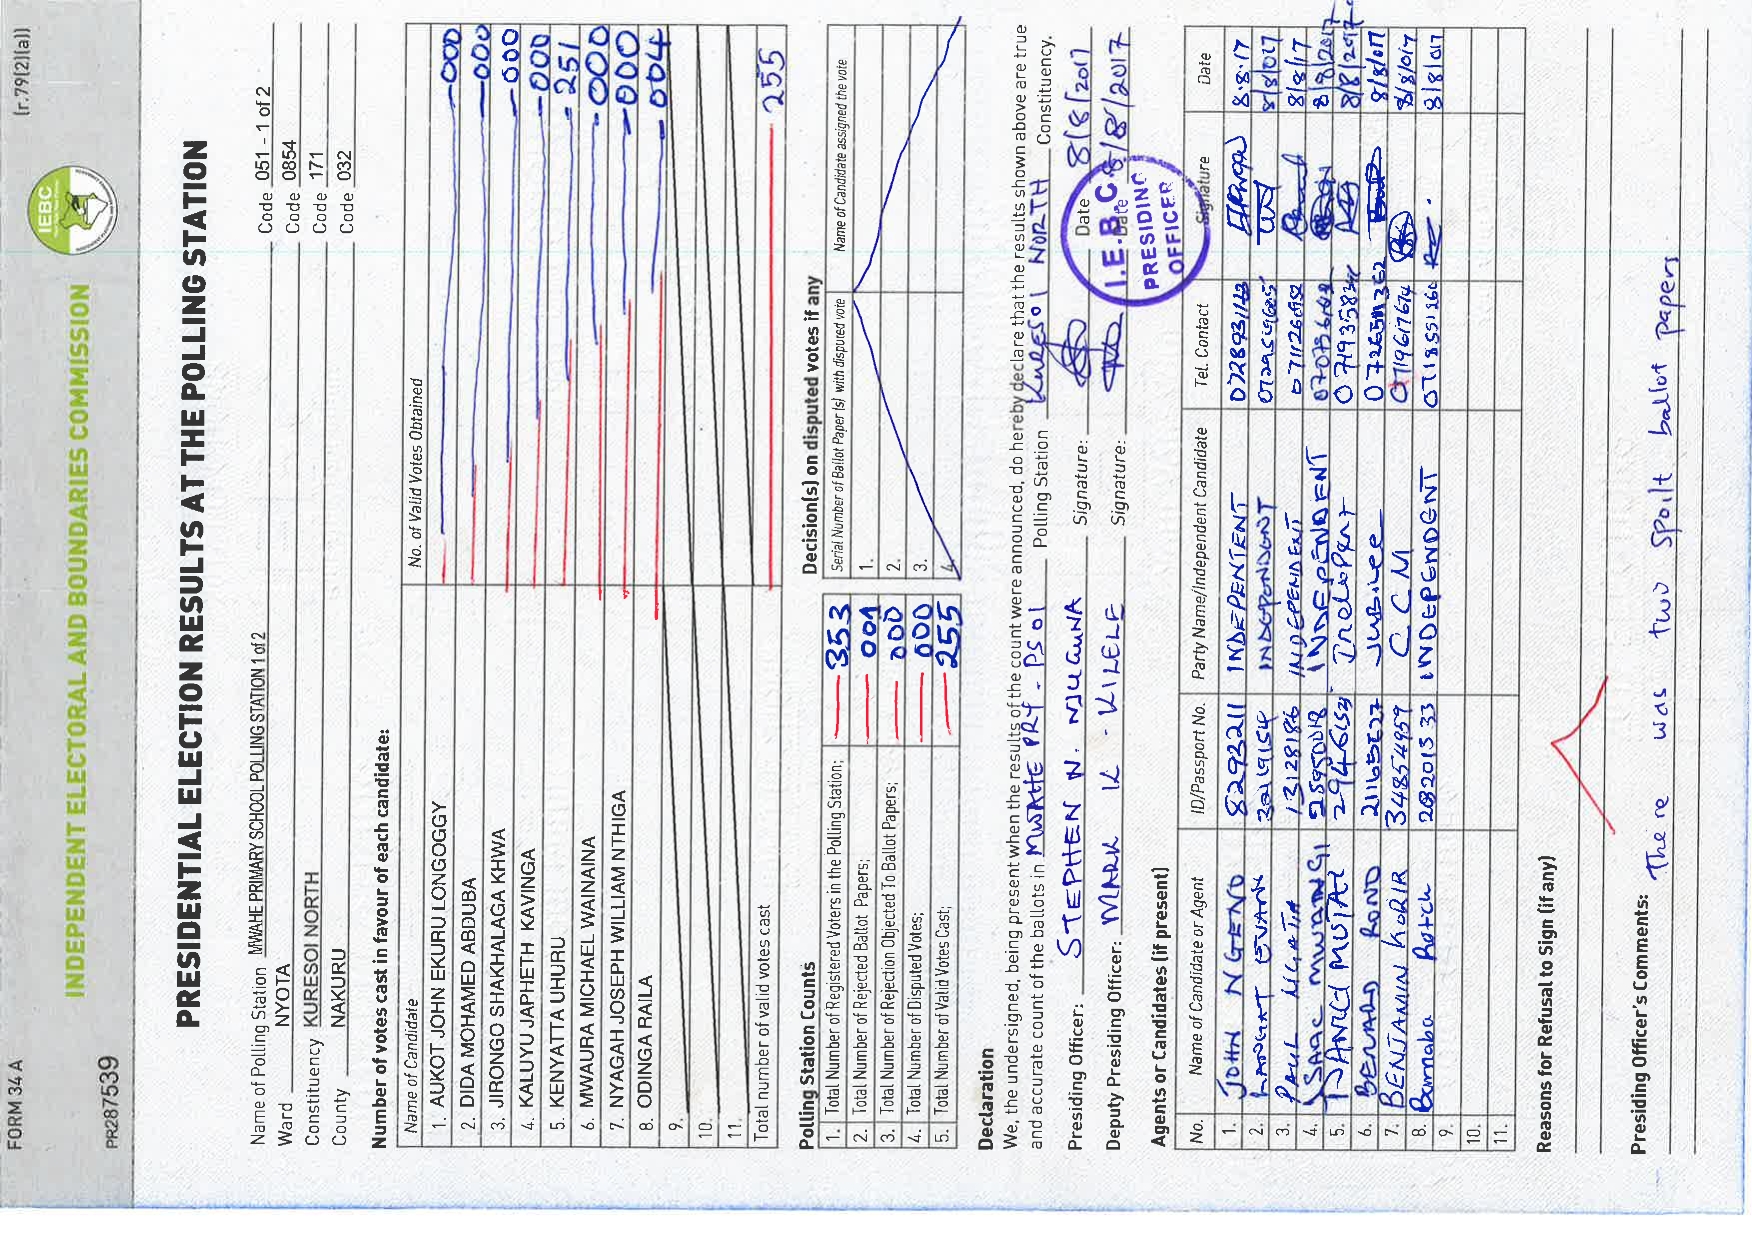 FORM 34 A
[r.79(2)(a)]
IEBC
INDEPENDENT ELECTORAL AND BOUNDARIES COMMISSION
PR287539
PRESIDENTIAL ELECTION RESULTS AT THE POLLING STATION
Name of Polling Station MWAHE PRIMARY SCHOOL POLLING STATION 1 of 2 Code 051 - 1 of 2
Ward NYOTA Code 0854
Constituency KURESOI NORTH Code 171
County NAKURU Code 032
Number of votes cast in favour of each candidate:
Name of Candidate No. of Valid Votes Obtained
1. AUKOT JOHN EKURU LONGOGGY 000
2. DIDA MOHAMED ABDUBA 000
3. JIRONGO SHAKHALAGA KHWA 000
4. KALUYU JAPHETH KAVINGA 000
5. KENYATTA UHURU 251
6. MWAURA MICHAEL WAINAINA 000
7. NYAGAH JOSEPH WILLIAM NTHIGA 000
8. ODINGA RAILA 004
9.
10.
11.
Total number of valid votes cast 255
Polling Station Counts
1. Total Number of Registered Voters in the Polling Station; 353
2. Total Number of Rejected Ballot Papers; 001
3. Total Number of Rejection Objected To Ballot Papers; 000
4. Total Number of Disputed Votes; 000
5. Total Number of Valid Votes Cast; 255
Decision(s) on disputed votes if any
Serial Number of Ballot Paper (s) with disputed vote Name of Candidate assigned the vote
1.
2.
3.
4.
Declaration
We, the undersigned, being present when the results of the count were announced, do hereby declare that the results shown above are true
and accurate count of the ballots in MWAHE PRY - PS 01 Polling Station KURESOI NORTH Constituency.
Presiding Officer: STEPHEN N. NJUGUNA Signature: Date 8/8/2017
Deputy Presiding Officer: MARK K. KILELE Signature: Date 8/8/2017
I.E.B.C
PRESIDING
OFFICER
Agents or Candidates (if present)
No. Name of Candidate or Agent ID/Passport No. Party Name/Independent Candidate Tel. Contact Signature Date
1. JOHN NGENO 8293211 INDEPENTENT 8.8.17
2. INDEPONDONT 8/8/017
3. PAUL 13128186 INDEPENDENT 0711260952 8/8/17
4. ISAAC MWANGI INDEPENDENT 8/8/2017
5. 8/8/2017
6. BENARD RONO JUBILEE 8/8/017
7. BENJAMIN KORIR 34854959 C C M 0719617674 8/8/017
8. Barnaba Rotch INDEPENDENT 8/8/017
9.
10.
11.
Reasons for Refusal to Sign (if any)
Presiding Officer's Comments: There was two spoilt ballot papers